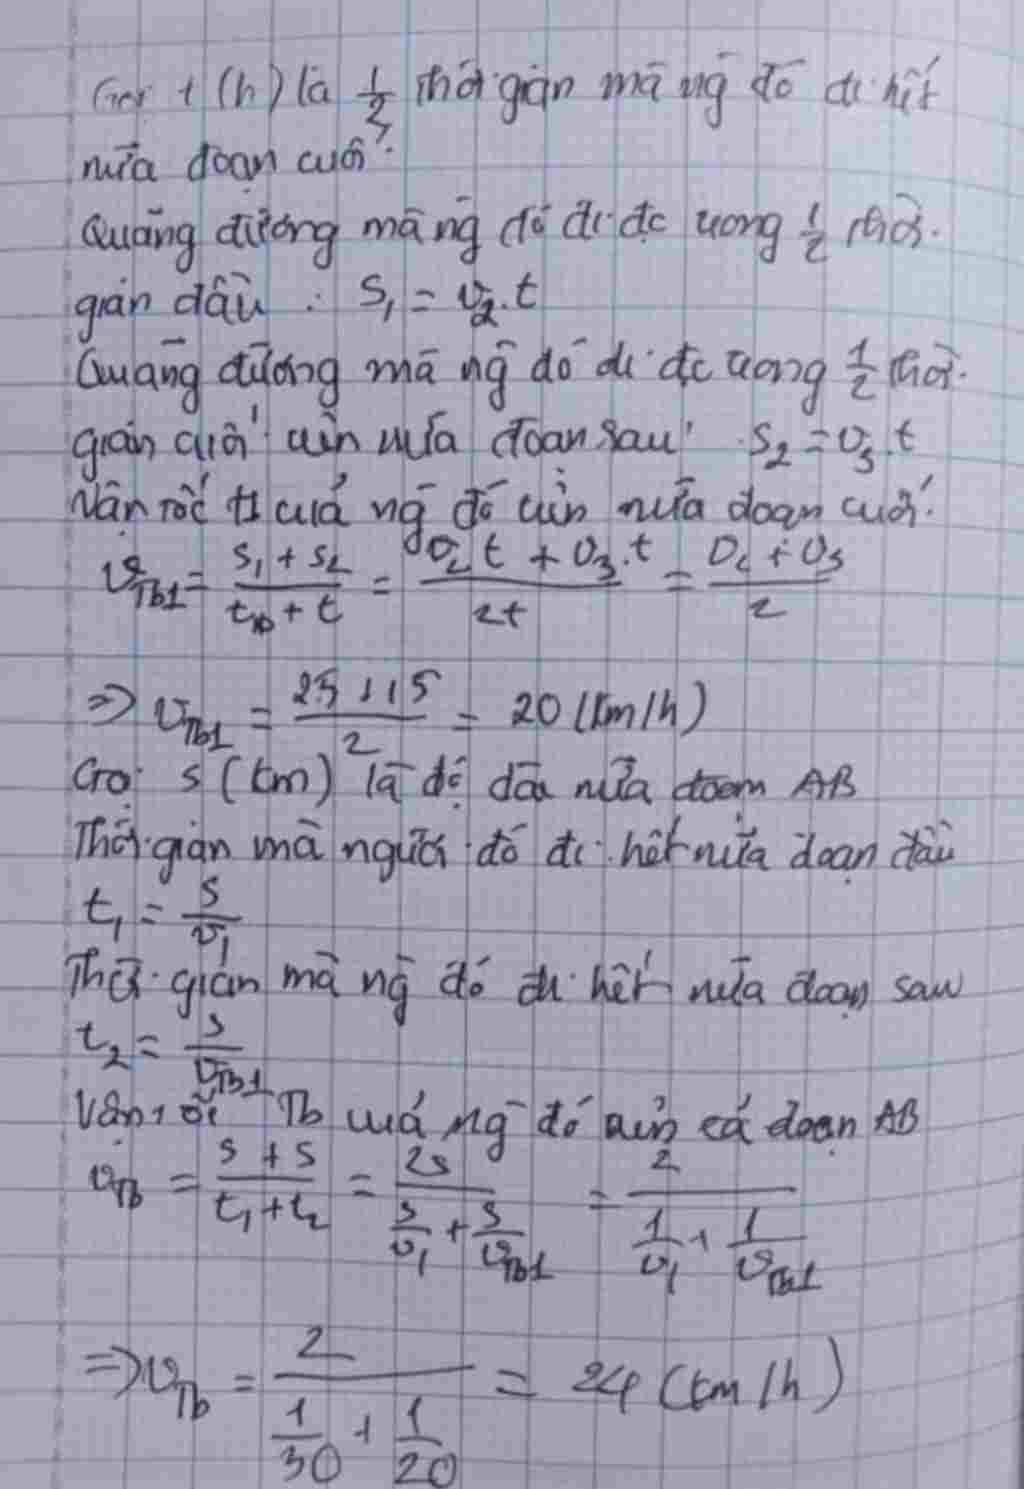 Gọi t (h) là 1/2 thời gian mà ng đó đi hết
nửa đoạn cuối.
Quãng đường mà ng đó đi đc trong 1/2 thời
gian đầu : S₁ = v₂.t
Quãng đường mà ng đó đi đc trong 1/2 thời
gian cuối của nửa đoạn sau: S₂ = v₃.t
Vận tốc tb của ng đó của nửa đoạn cuối:
v_Tb1 = (S₁ + S₂)/(t + t) = (v₂t + v₃.t)/2t = (v₂ + v₃)/2
=> v_Tb1 = (25 + 15)/2 = 20 (km/h)
Gọi s (km) là độ dài nửa đoạn AB
Thời gian mà người đó đi hết nửa đoạn đầu
t₁ = s/v₁
Thời gian mà ng đó đi hết nửa đoạn sau
t₂ = s/v_Tb1
Vận tốc Tb của ng đó của cả đoạn AB
v_Tb = (s + s)/(t₁ + t₂) = 2s/(s/v₁ + s/v_Tb1) = 2/(1/v₁ + 1/v_Tb1)
=> v_Tb = 2/(1/30 + 1/20) = 24 (km/h)